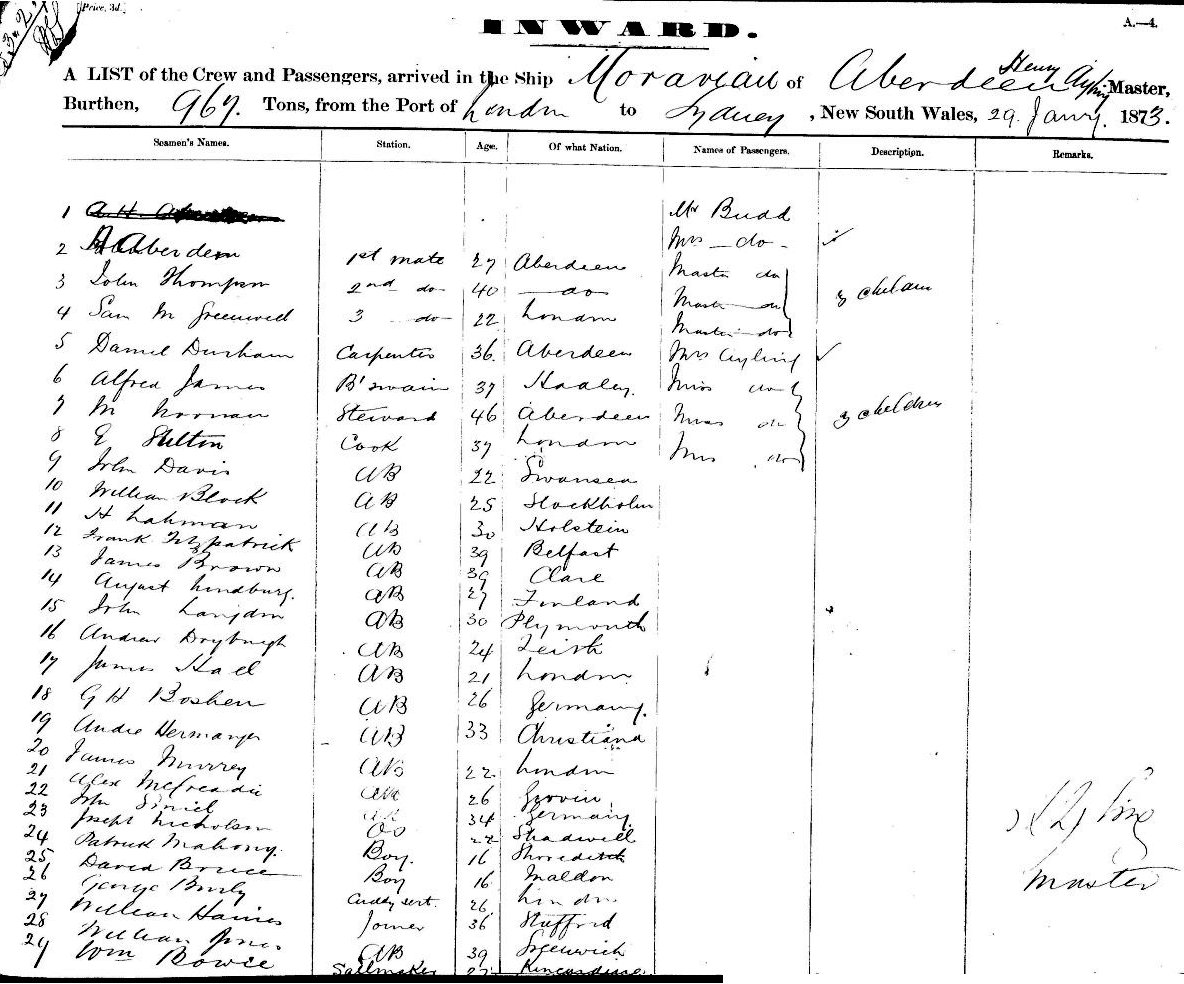 Price, 3d.
A.—4.
INWARD.
A LIST of the Crew and Passengers, arrived in the Ship Moravian of Aberdeen Henry Ayling Master,
Burthen, 967. Tons, from the Port of London to Sydney, New South Wales, 29 Janry. 1873.
Seamen's Names. Station. Age. Of what Nation. Names of Passengers. Description. Remarks.
1 A. H. Mr Budd
2 A Aberdein 1st mate 27 Aberdeen Mrs — do -
3 John Thompson 2nd do 40 — do Master do
4 Sam M Greenwell 3 — do — 22 London Master do 3 children
Master do
5 Daniel Durham Carpenter 36 Aberdeen Mrs Ayling
6 Alfred James B'swain 37 Hadley Miss do
7 M Noonan Steward 46 Aberdeen Miss do 3 children
8 E Stilton Cook 37 London Miss do
9 John Davis AB 22 Swansea
10 William Block AB 25 Stockholm
11 H Lahman AB 30 Holstein
12 Frank Fitzpatrick AB 39 Belfast
13 James Brown AB 39 Clare
14 August Lindburg. AB 27 Finland
15 John Langdon AB 30 Plymouth
16 Andrew Dryburgh AB 24 Leith
17 James Hall AB 21 London
18 G H Boshen AB 26 Germany.
19 Andre Hermanger AB 33 Christiana
20 James Murrey AB 22 London
21 Alex McCreadie AB 26
22 John AB 34 Germany
23 Joseph Nicholson OS 22 Shadwell
24 Patrick Mahony. Boy. 16 Shoreditch
25 David Bruce Boy 16 Maldon
26 George Cuddy sert. 26 London
27 William Haines Joiner 36 Stafford
28 William Jones AB 39 Greenwich
29 Wm Bowie Sailmaker 27 Kincardine
Master